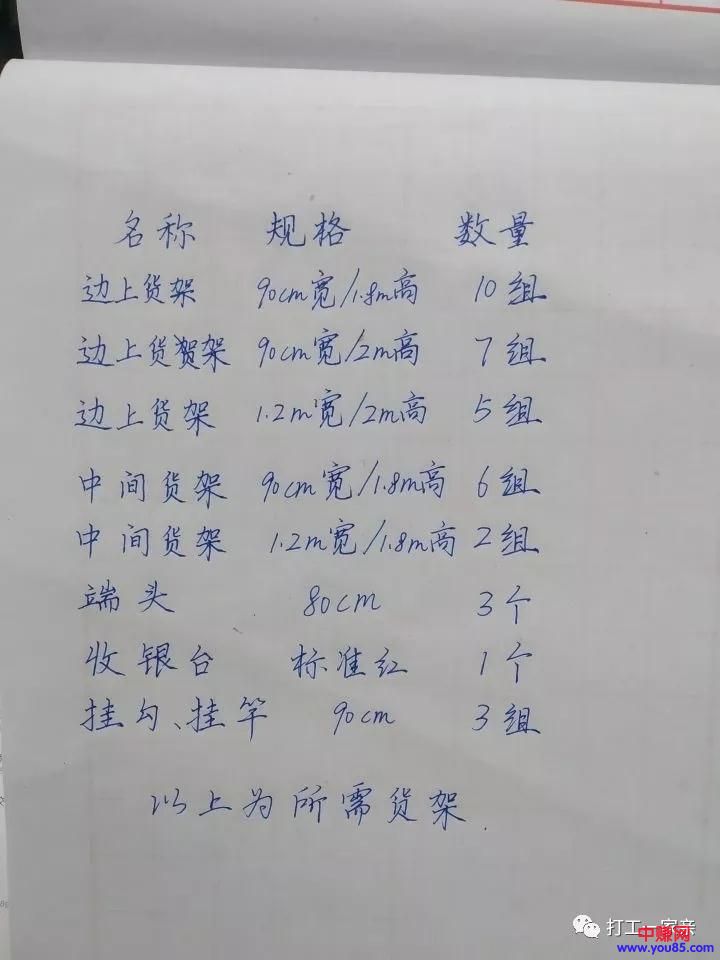 名称 规格 数量
边上货架 90cm宽/1.8m高 10组
边上货架 90cm宽/2m高 7组
边上货架 1.2m宽/2m高 5组
中间货架 90cm宽/1.8m高 6组
中间货架 1.2m宽/1.8m高 2组
端头 80cm 3个
收银台 标准红 1个
挂勾、挂竿 90cm 3组
以上为所需货架.
打工一家亲
中赚网
www.you85.com